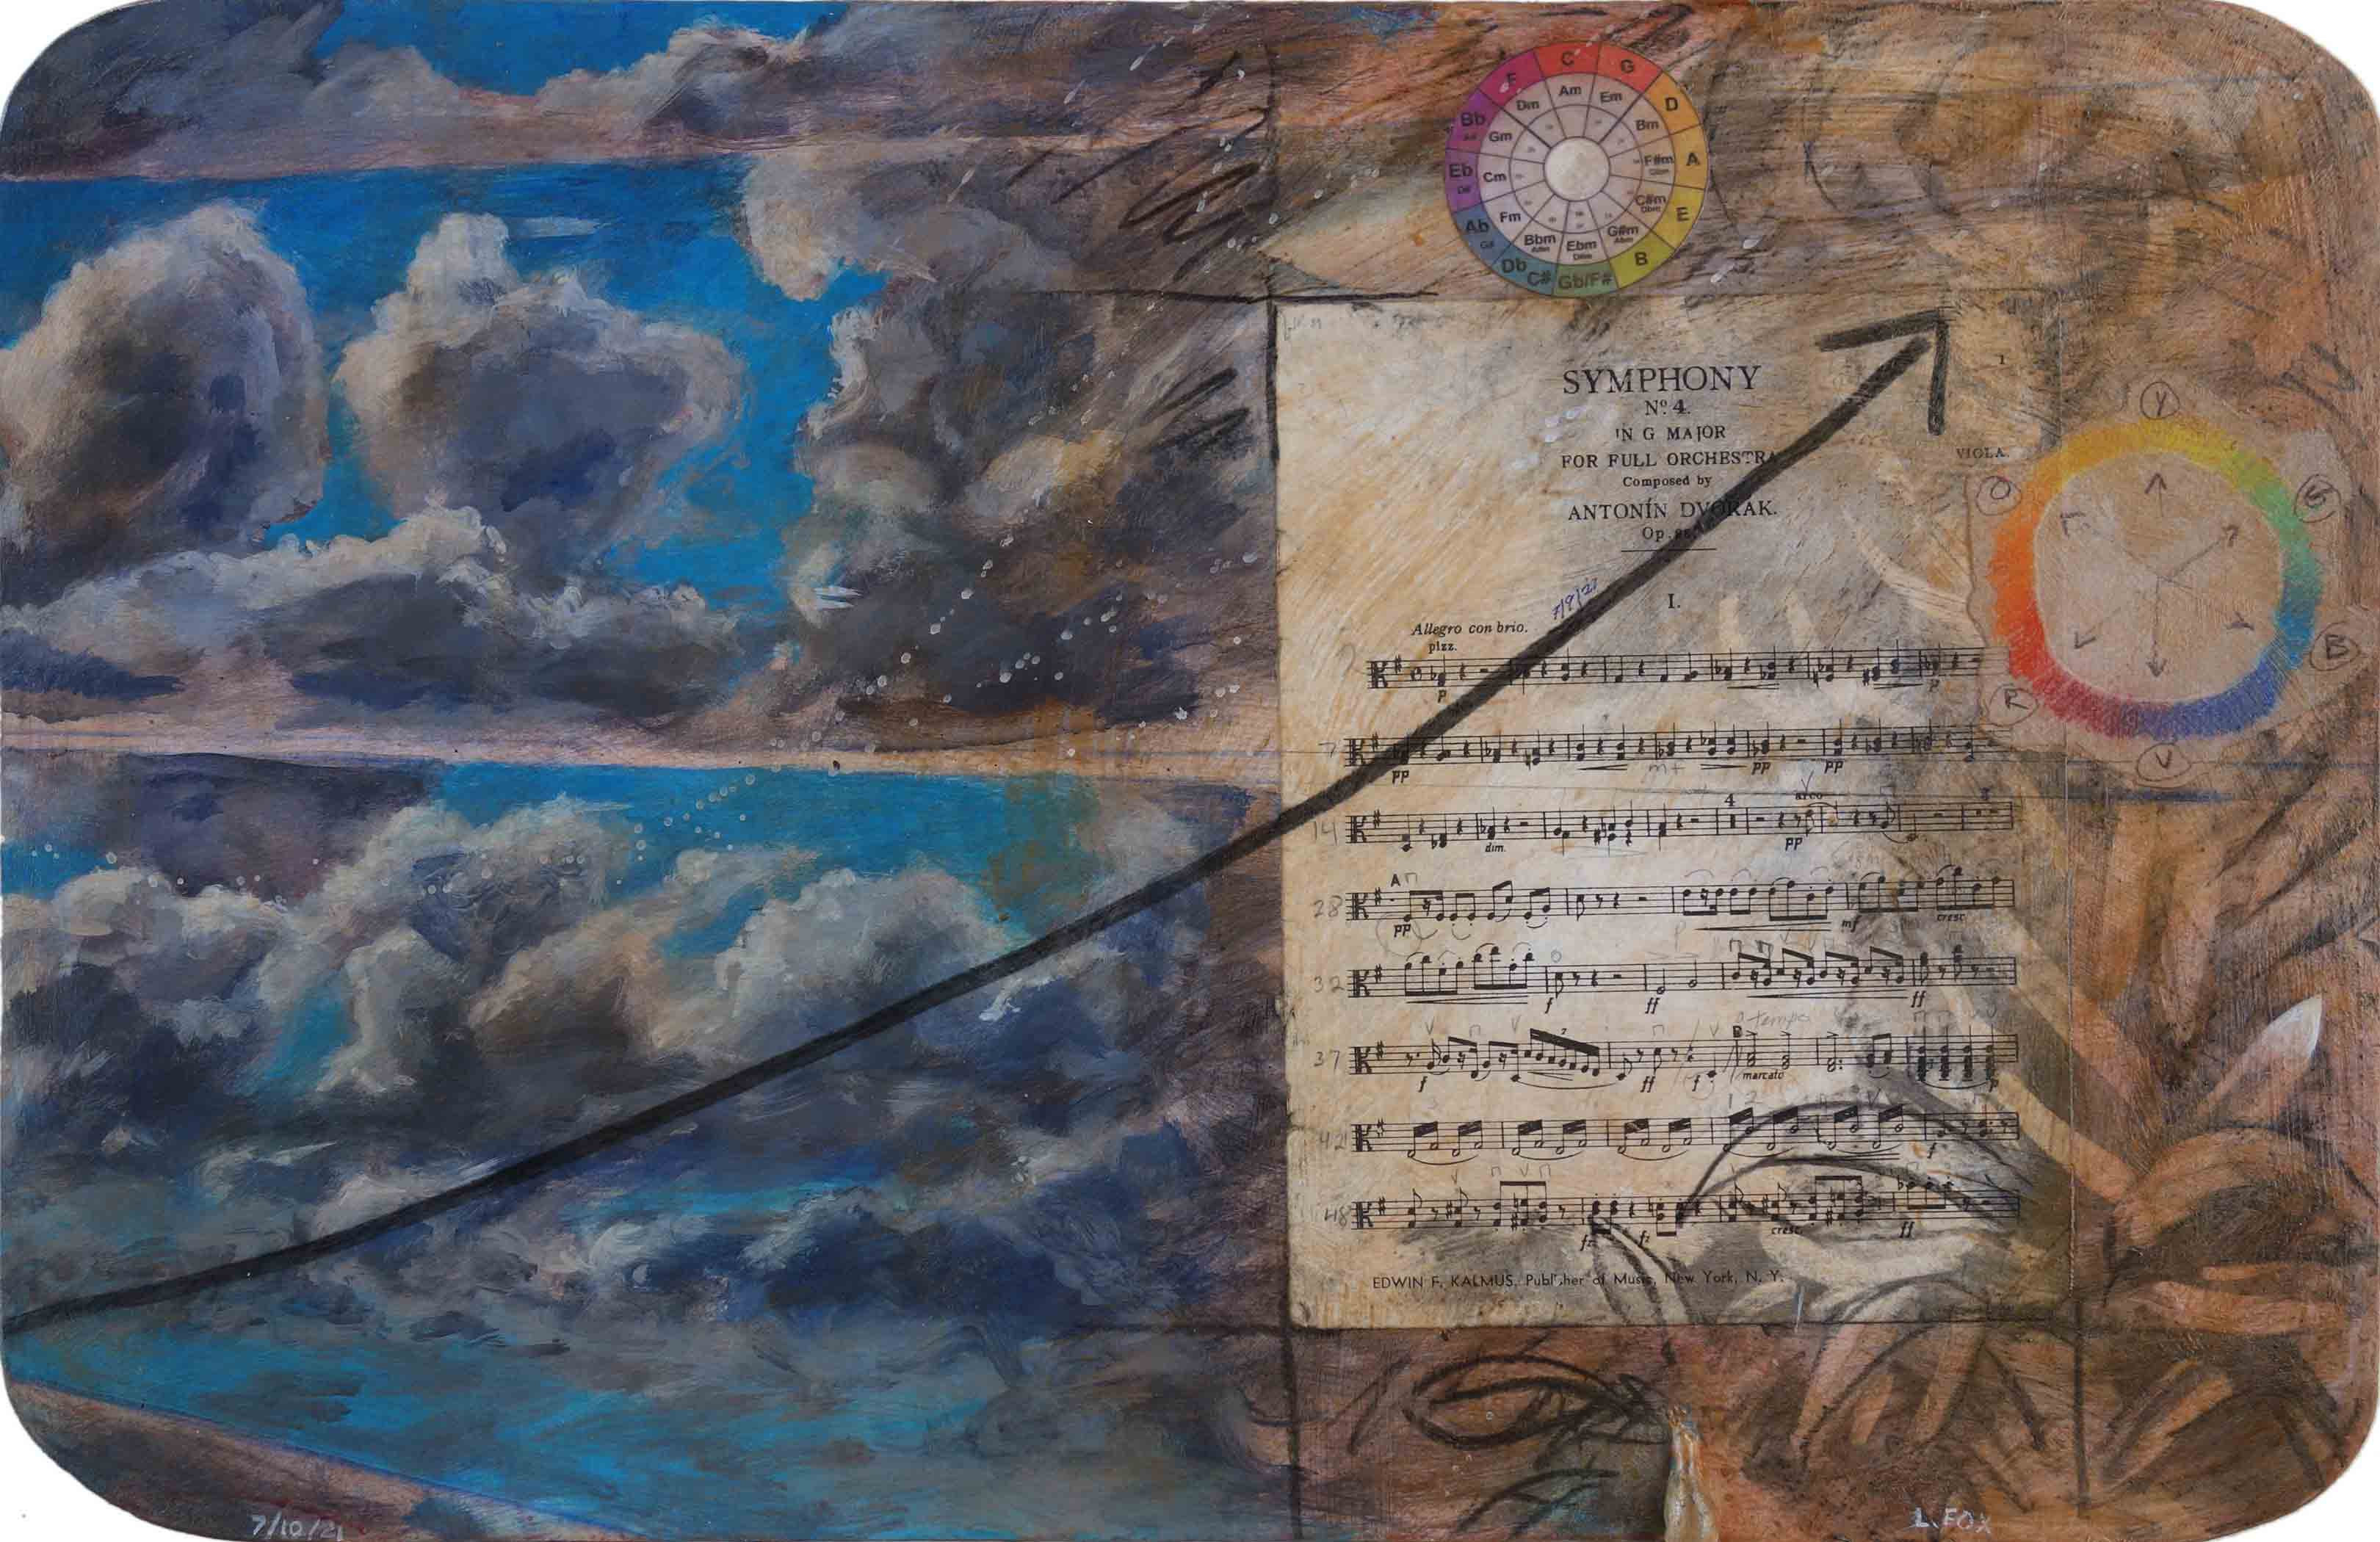 F C G D A E B Gb/F# C# Db Ab Eb Bb
Dm Am Em Bm F#m C#m G#m Ebm Bbm Fm Cm Gm
1
SYMPHONY
Nº 4.
IN G MAJOR
FOR FULL ORCHESTRA
Composed by
ANTONÍN DVOŘAK.
Op.
VIOLA.
Y
O
B
R
V
I.
Allegro con brio.
pizz.
p p
7
pp m+ pp pp
14 4 arco
dim. pp
28 A
pp mf cresc.
32
f ff ff
37 B a tempo
f ff f marcato
42
f
48
fz fz cresc. ff
EDWIN F. KALMUS, Publisher of Music, New York, N. Y.
7/10/21
L. FOX